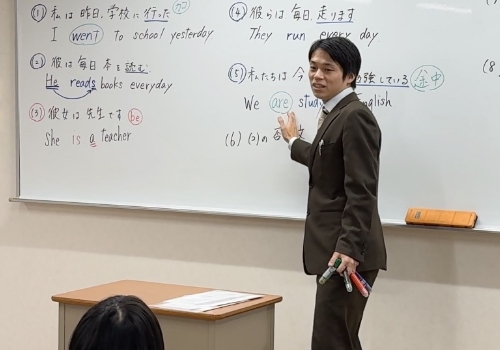 (1) 私は昨日、学校に行った
I went to school yesterday
(2) 彼は毎日本を読む
He reads books everyday
(3) 彼女は先生です be
She is a teacher
(4) 彼らは毎日、走ります
They run every day
(5) 私たちは今 強している 途中
We are study nglish
(6) (2)の